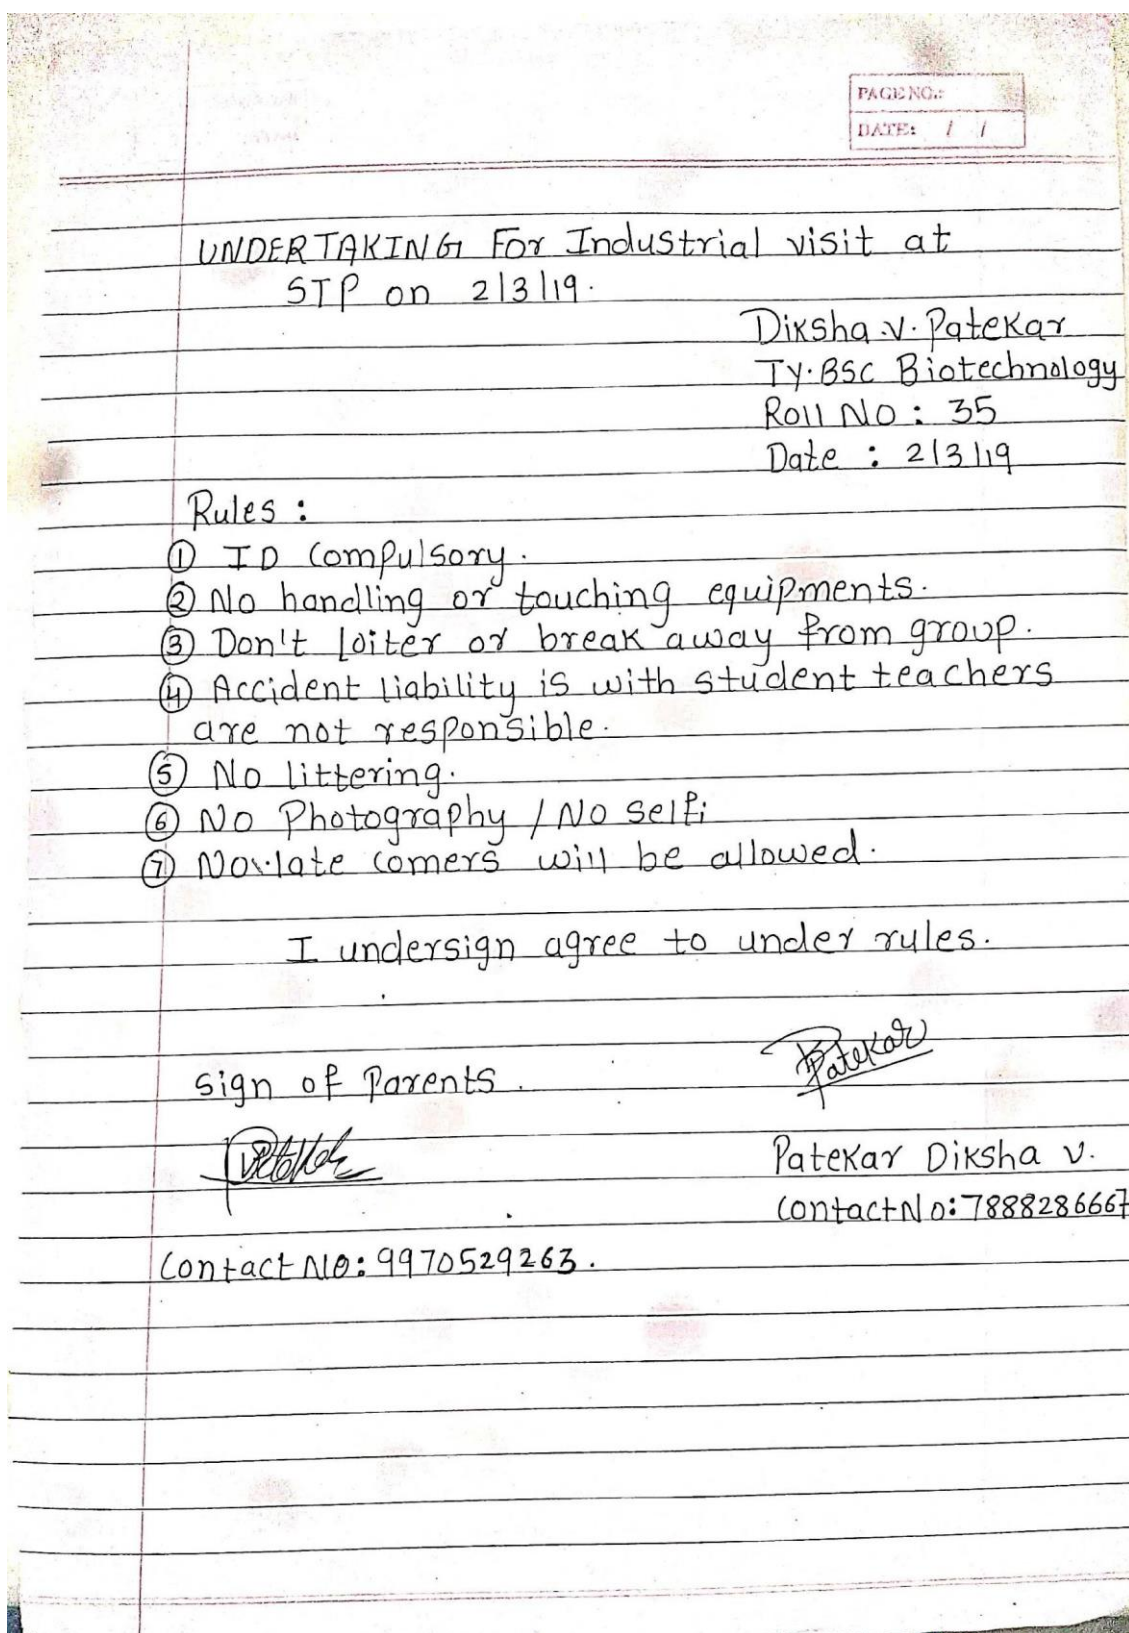 PAGE NO.:
DATE: / /
UNDERTAKING For Industrial visit at
STP on 2/3/19.
Diksha .V. Patekar
TY.BSC Biotechnology
Roll No : 35
Date : 2/3/19
Rules :
① ID compulsory.
② No handling or touching equipments.
③ Don't loiter or break away from group.
④ Accident liability is with student teachers
are not responsible.
⑤ No littering.
⑥ No Photography / No selfi
⑦ No late comers will be allowed.
I undersign agree to under rules.
Patekar
sign of Parents.
Patekar Diksha V.
Contact No: 7888286667
Contact No: 9970529263.